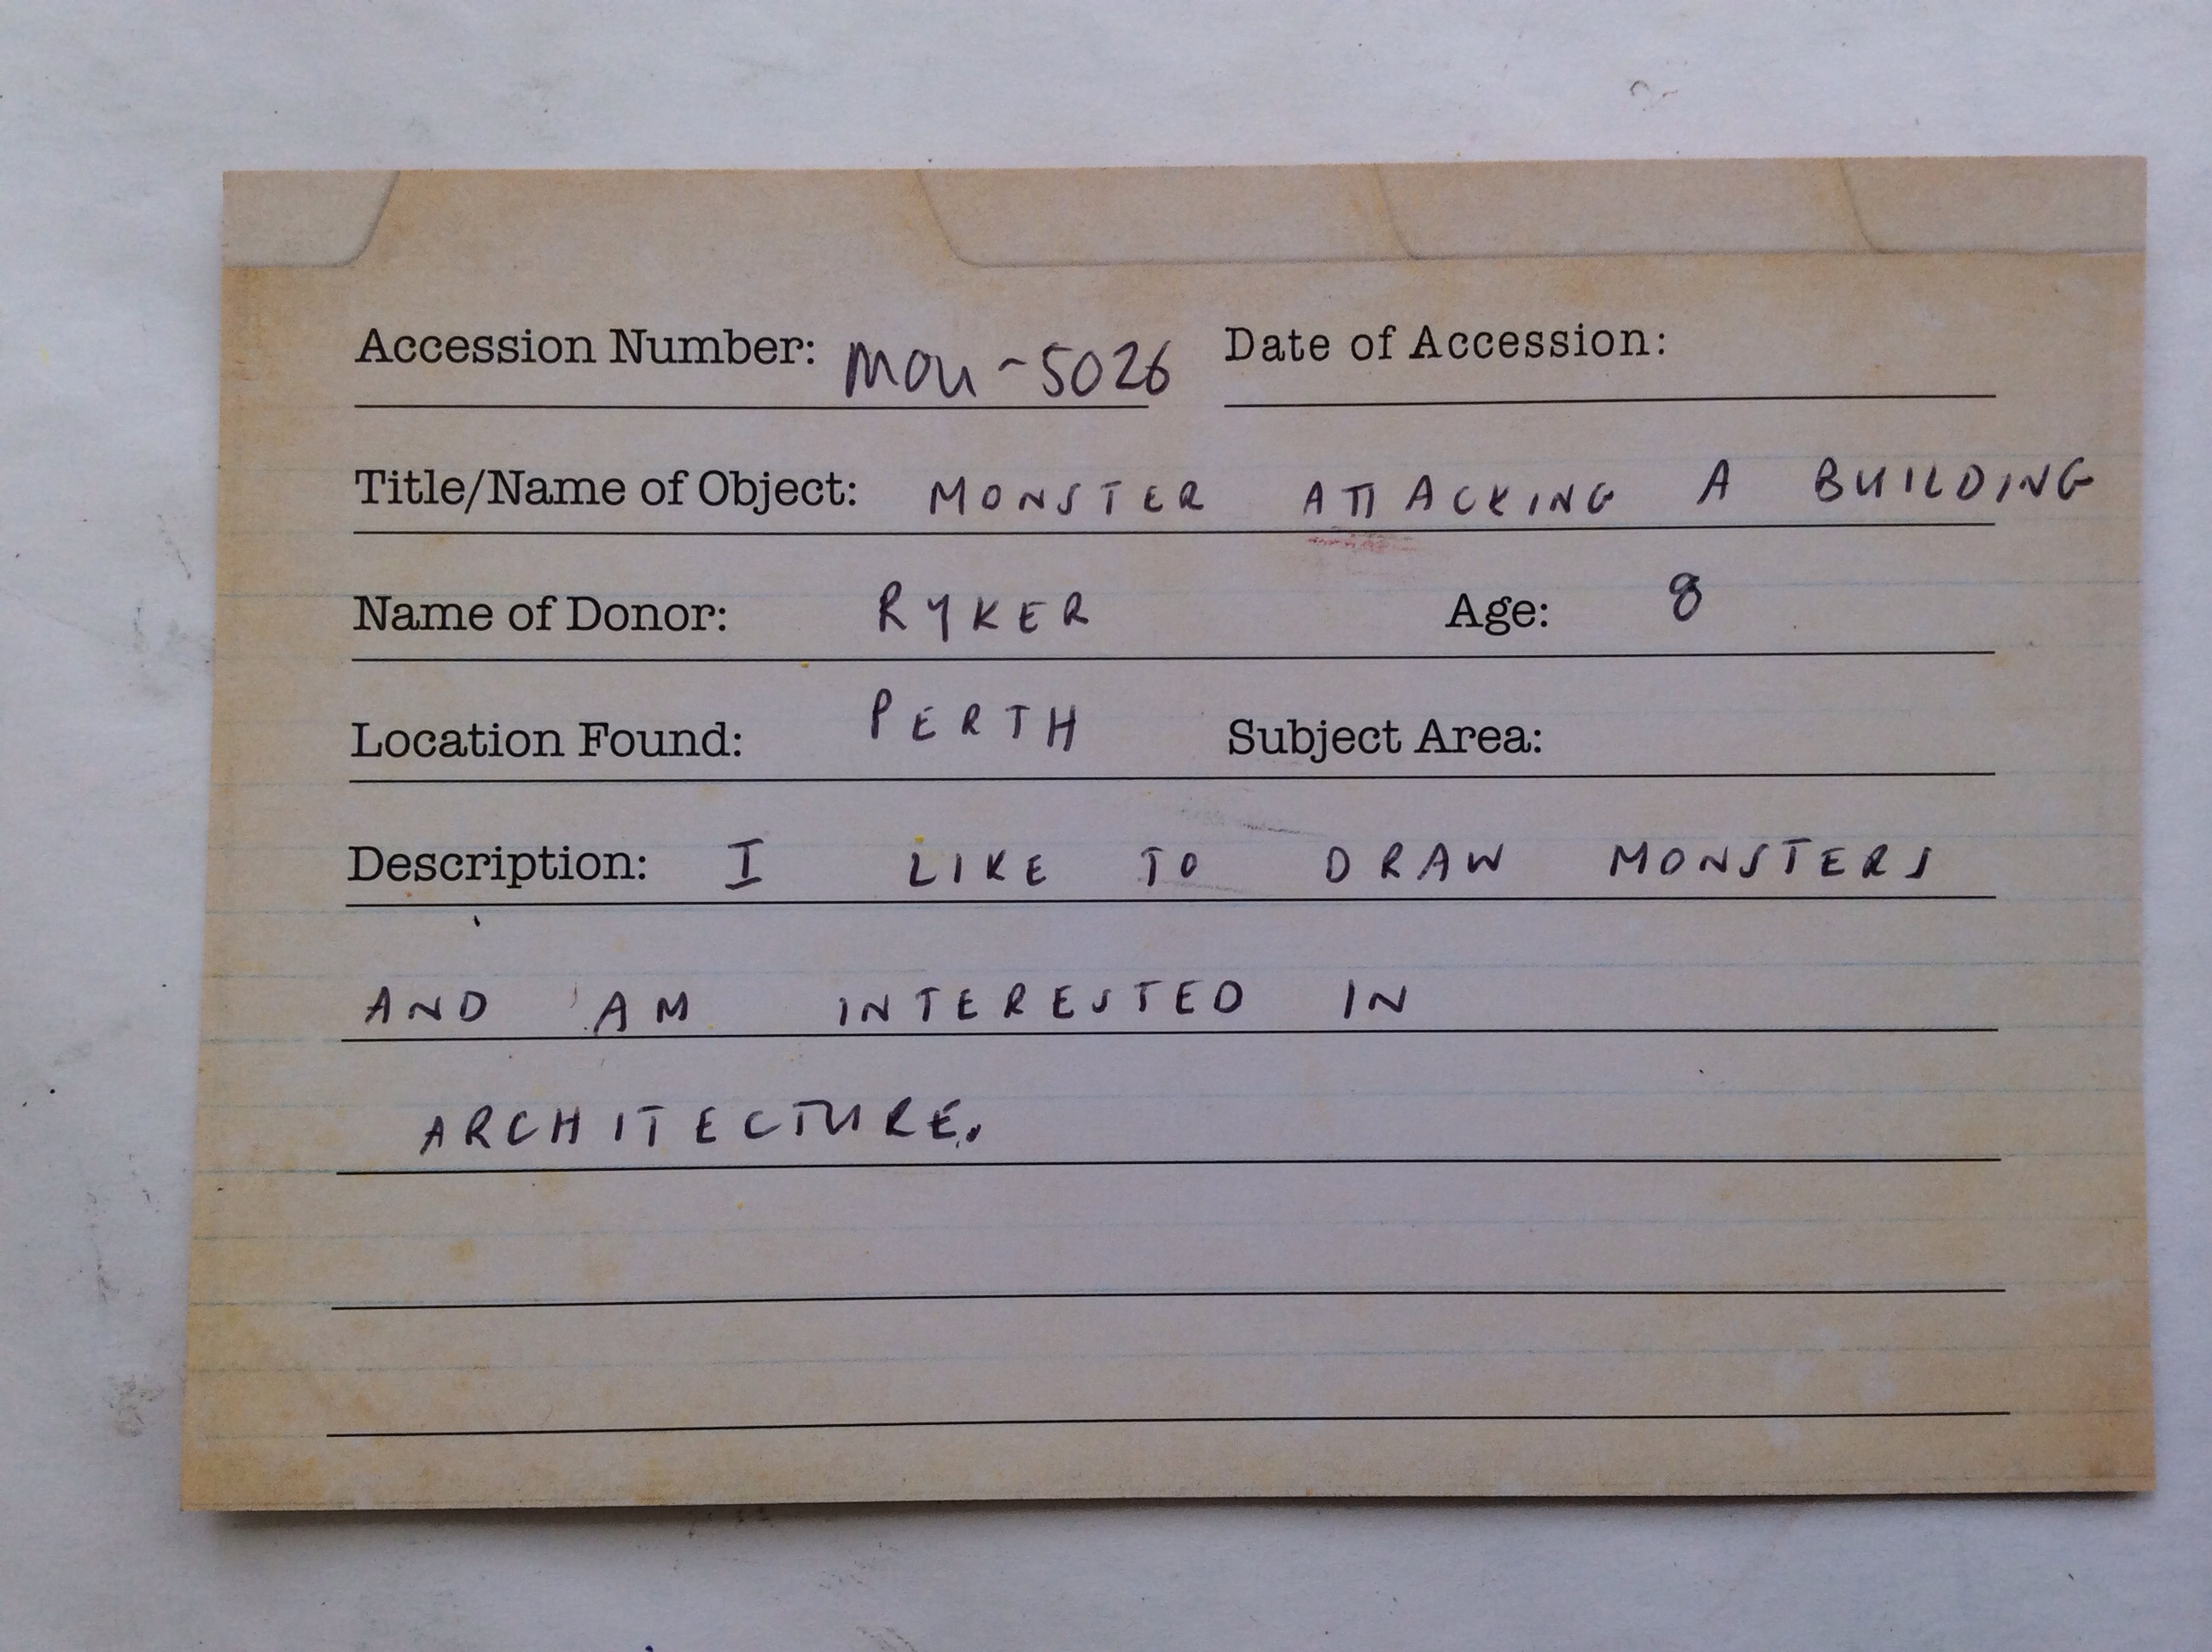 Accession Number: MOU-5026 Date of Accession:
Title/Name of Object: MONSTER ATTACKING A BUILDING
Name of Donor: RYKER Age: 8
Location Found: PERTH Subject Area:
Description: I LIKE TO DRAW MONSTERS
AND AM INTERESTED IN
ARCHITECTURE.